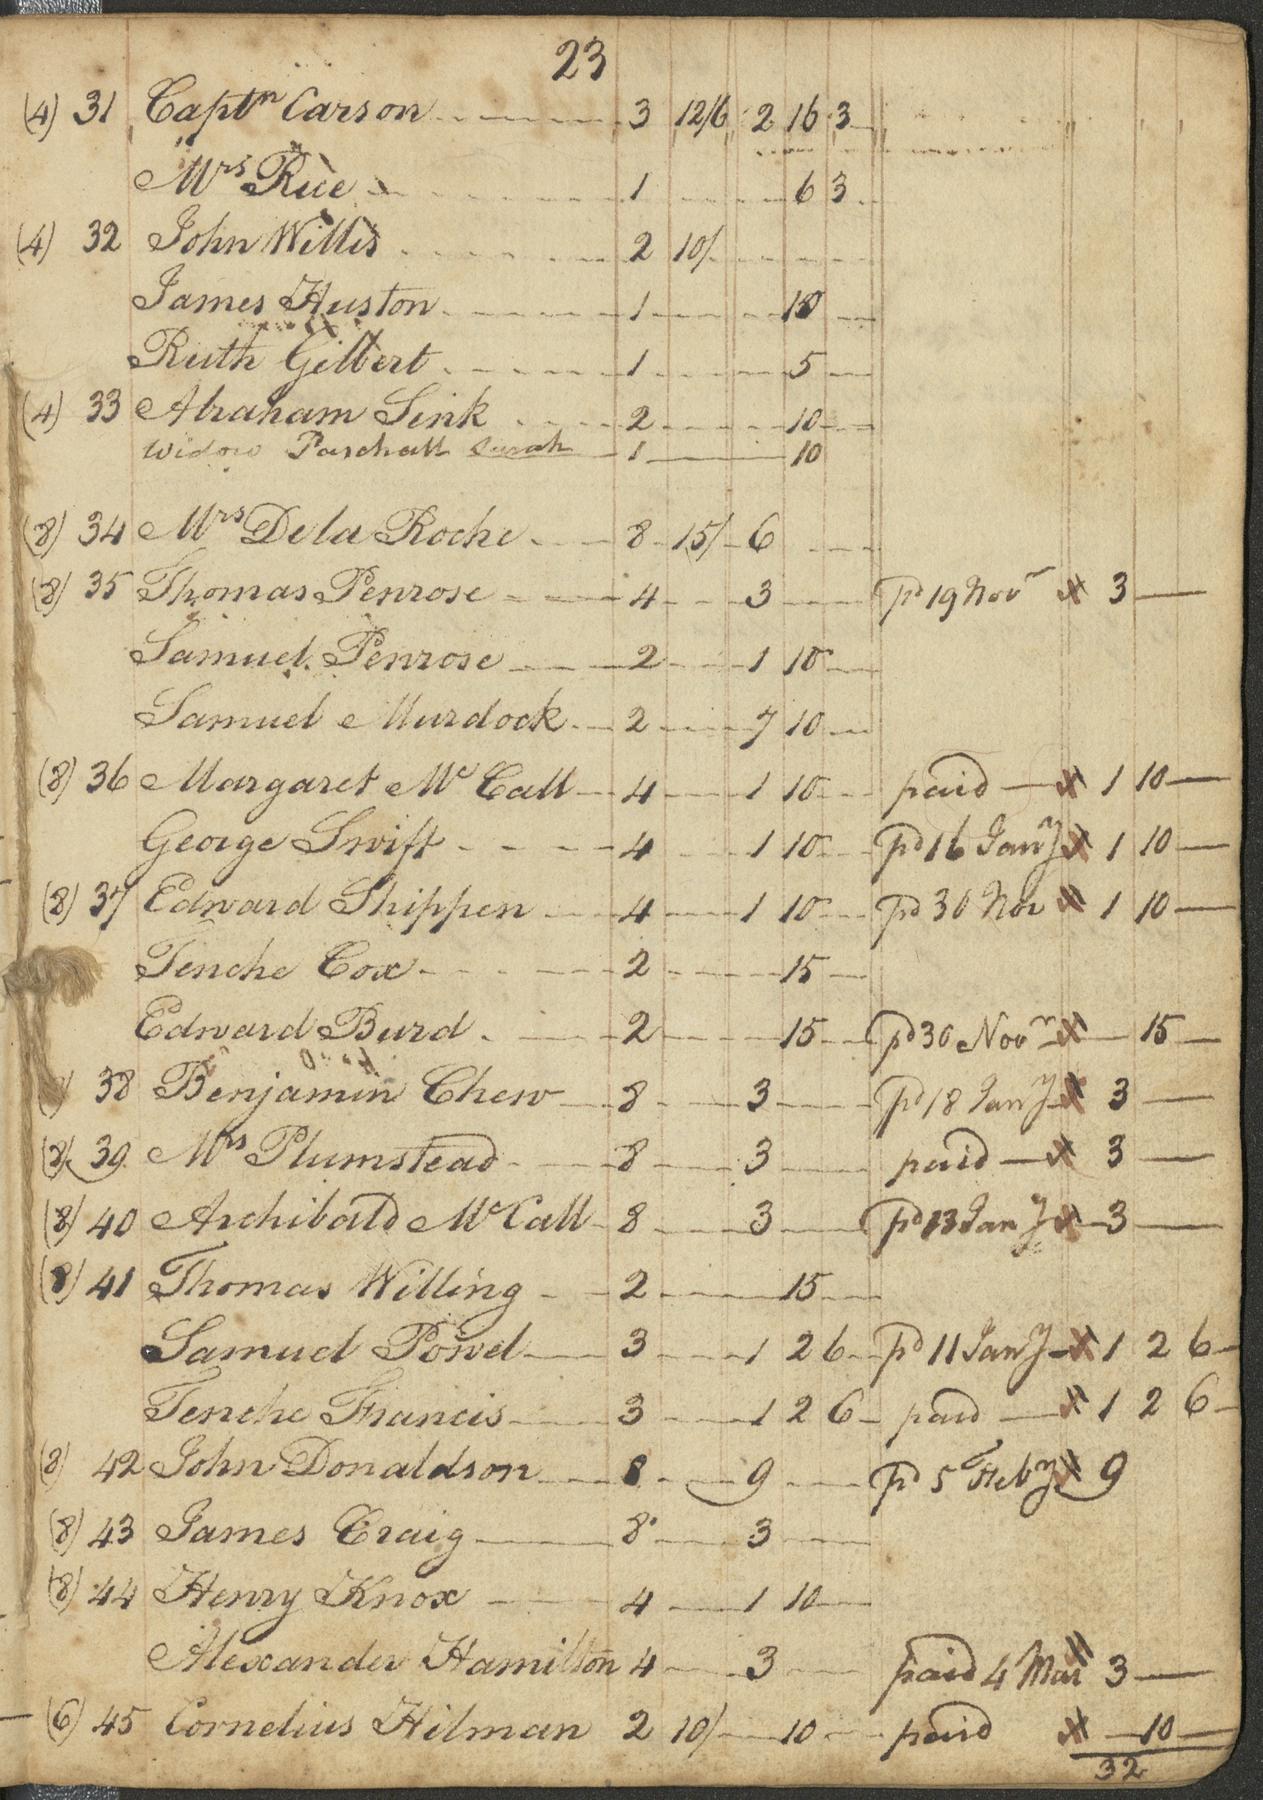 23
(4) 31 Captn Carson 3 12/6 2 16 3
Mrs Rue 1 6 3
(4) 32 John Willis 2 10/
James Huston 1 10
Ruth Gilbert 1 5
(4) 33 Abraham Sink 2 10
Widow Paschall Sarah 1 10
(8) 34 Mrs De la Roche 8 15/ 6
(8) 35 Thomas Penrose 4 3 pd 19 Novr 3
Samuel Penrose 2 1 10
Samuel Murdock 2 7 10
(8) 36 Margaret Mc Call 4 1 10 paid 1 10
George Swift 4 1 10 pd 16 Jany 1 10
(8) 37 Edward Shippen 4 1 10 pd 30 Nov 1 10
Tenche Cox 2 15
Edward Burd 2 15 pd 30 Novr 15
38 Benjamin Chew 8 3 pd 18 Jany 3
(8) 39 Mrs Plumstead 8 3 paid 3
(8) 40 Archibald McCall 8 3 pd 13 Jany 3
(8) 41 Thomas Willing 2 15
Samuel Powel 3 1 2 6 pd 11 Jany 1 2 6
Tenche Francis 3 1 2 6 paid 1 2 6
(8) 42 John Donaldson 8 9 pd 5 Feby 9
(8) 43 James Craig 8 3
(8) 44 Henry Knox 4 1 10
Alexander Hamilton 4 3 paid 4 Mar 3
(6) 45 Cornelius Hilman 2 10/ 10 paid 10
32